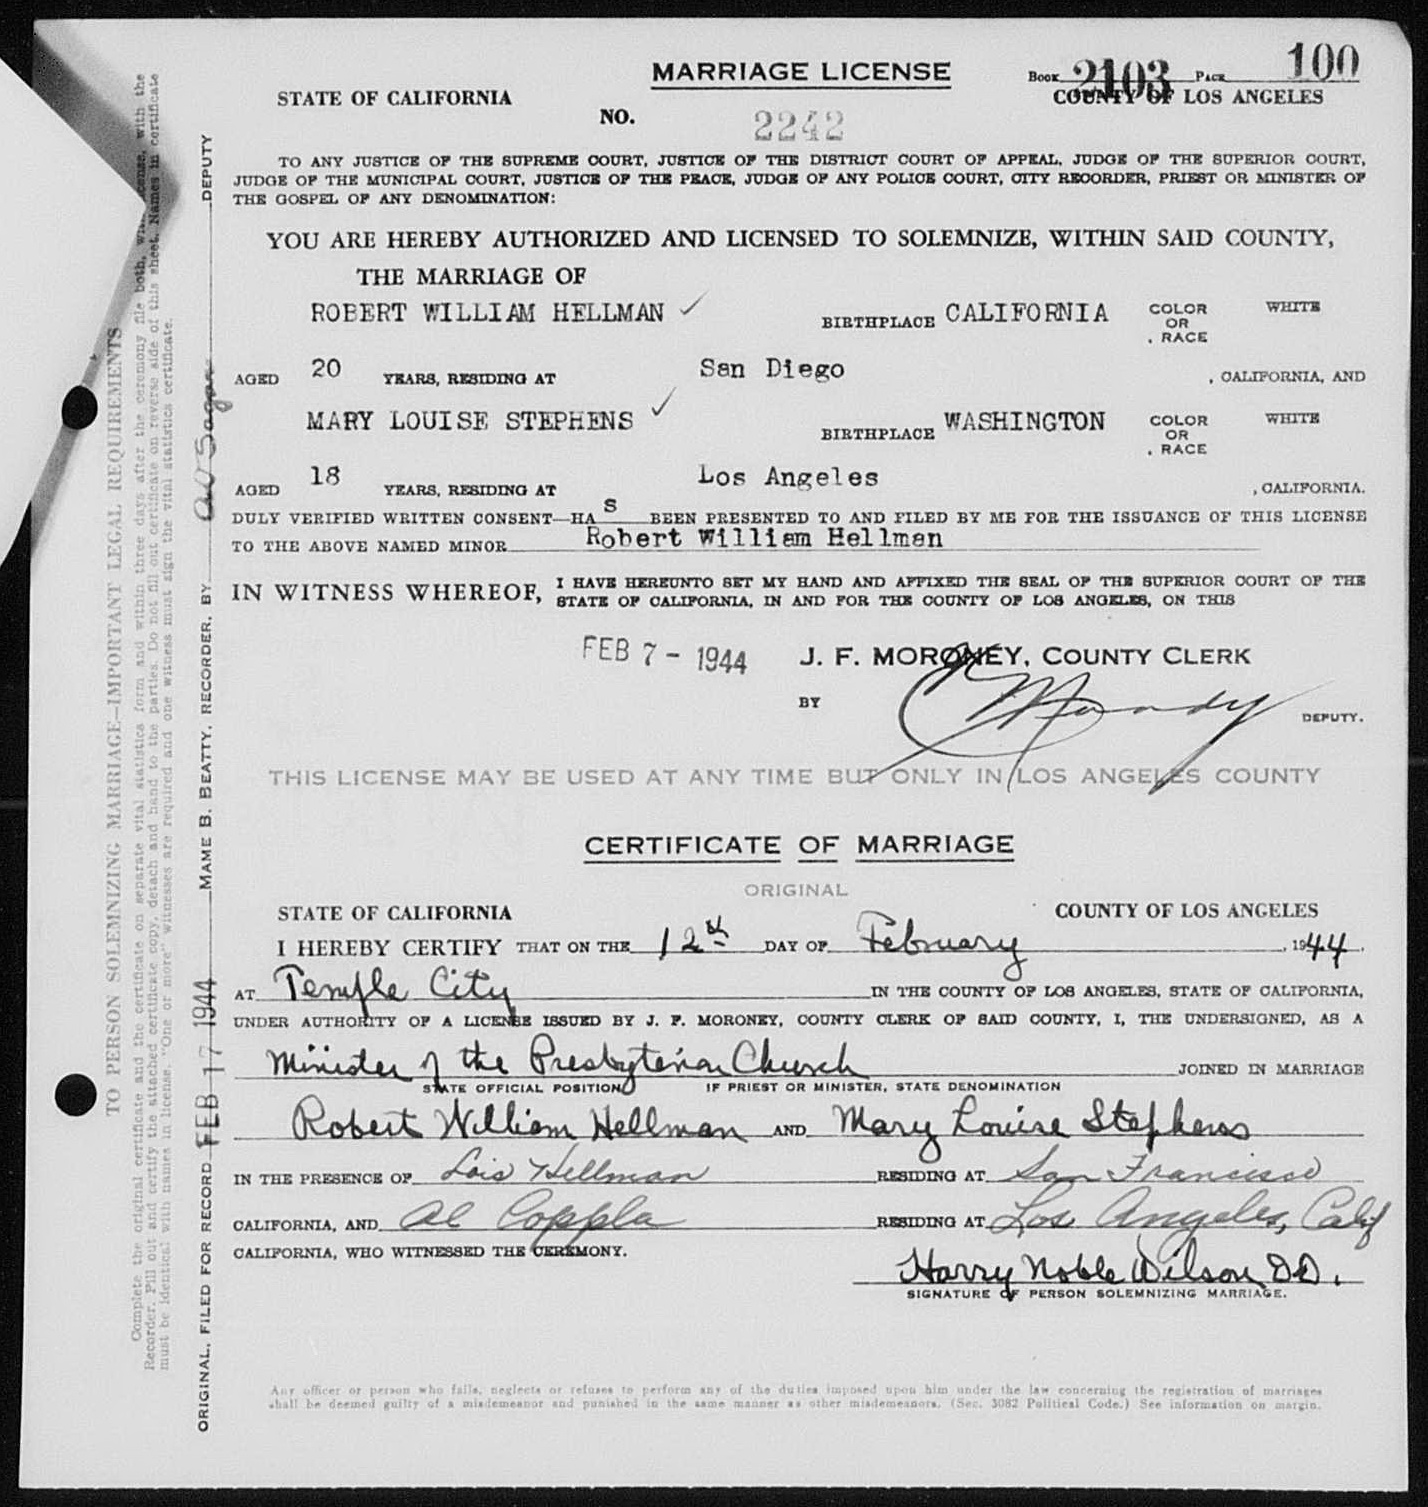 MARRIAGE LICENSE
BOOK 2103 PAGE 100
STATE OF CALIFORNIA
COUNTY OF LOS ANGELES
NO. 2242
TO ANY JUSTICE OF THE SUPREME COURT, JUSTICE OF THE DISTRICT COURT OF APPEAL, JUDGE OF THE SUPERIOR COURT,
JUDGE OF THE MUNICIPAL COURT, JUSTICE OF THE PEACE, JUDGE OF ANY POLICE COURT, CITY RECORDER, PRIEST OR MINISTER OF
THE GOSPEL OF ANY DENOMINATION:
YOU ARE HEREBY AUTHORIZED AND LICENSED TO SOLEMNIZE, WITHIN SAID COUNTY,
THE MARRIAGE OF
ROBERT WILLIAM HELLMAN ✓ BIRTHPLACE CALIFORNIA COLOR OR RACE WHITE
AGED 20 YEARS, RESIDING AT San Diego , CALIFORNIA, AND
MARY LOUISE STEPHENS ✓ BIRTHPLACE WASHINGTON COLOR OR RACE WHITE
AGED 18 YEARS, RESIDING AT Los Angeles , CALIFORNIA.
DULY VERIFIED WRITTEN CONSENT—HA S BEEN PRESENTED TO AND FILED BY ME FOR THE ISSUANCE OF THIS LICENSE
TO THE ABOVE NAMED MINOR Robert William Hellman
IN WITNESS WHEREOF, I HAVE HEREUNTO SET MY HAND AND AFFIXED THE SEAL OF THE SUPERIOR COURT OF THE
STATE OF CALIFORNIA, IN AND FOR THE COUNTY OF LOS ANGELES, ON THIS
FEB 7 - 1944 J. F. MORONEY, COUNTY CLERK
BY DEPUTY.
THIS LICENSE MAY BE USED AT ANY TIME BUT ONLY IN LOS ANGELES COUNTY
CERTIFICATE OF MARRIAGE
ORIGINAL
STATE OF CALIFORNIA COUNTY OF LOS ANGELES
I HEREBY CERTIFY THAT ON THE 12th DAY OF February , 1944
AT Temple City IN THE COUNTY OF LOS ANGELES, STATE OF CALIFORNIA,
UNDER AUTHORITY OF A LICENSE ISSUED BY J. F. MORONEY, COUNTY CLERK OF SAID COUNTY, I, THE UNDERSIGNED, AS A
Minister of the Presbyterian Church JOINED IN MARRIAGE
STATE OFFICIAL POSITION IF PRIEST OR MINISTER, STATE DENOMINATION
Robert William Hellman AND Mary Louise Stephens
IN THE PRESENCE OF Lois Hellman RESIDING AT San Francisco
CALIFORNIA, AND Al Coppla RESIDING AT Los Angeles, Calif
CALIFORNIA, WHO WITNESSED THE CEREMONY.
Harry Noble Wilson D.D.
SIGNATURE OF PERSON SOLEMNIZING MARRIAGE.
Any officer or person who fails, neglects or refuses to perform any of the duties imposed upon him under the law concerning the registration of marriages
shall be deemed guilty of a misdemeanor and punished in the same manner as other misdemeanors. (Sec. 3082 Political Code.) See information on margin.
TO PERSON SOLEMNIZING MARRIAGE—IMPORTANT LEGAL REQUIREMENTS
Complete the original certificate and the certificate on separate vital statistics form and within three days after the ceremony file both, with license, with the
Recorder. Fill out and certify the attached certificate copy, detach and hand to the parties. Do not fill out certificate on reverse side of this sheet. Names in certificate
must be identical with names in license. "One or more" witnesses are required and one witness must sign the vital statistics certificate.
ORIGINAL, FILED FOR RECORD FEB 17 1944 MAME B. BEATTY, RECORDER, BY DEPUTY